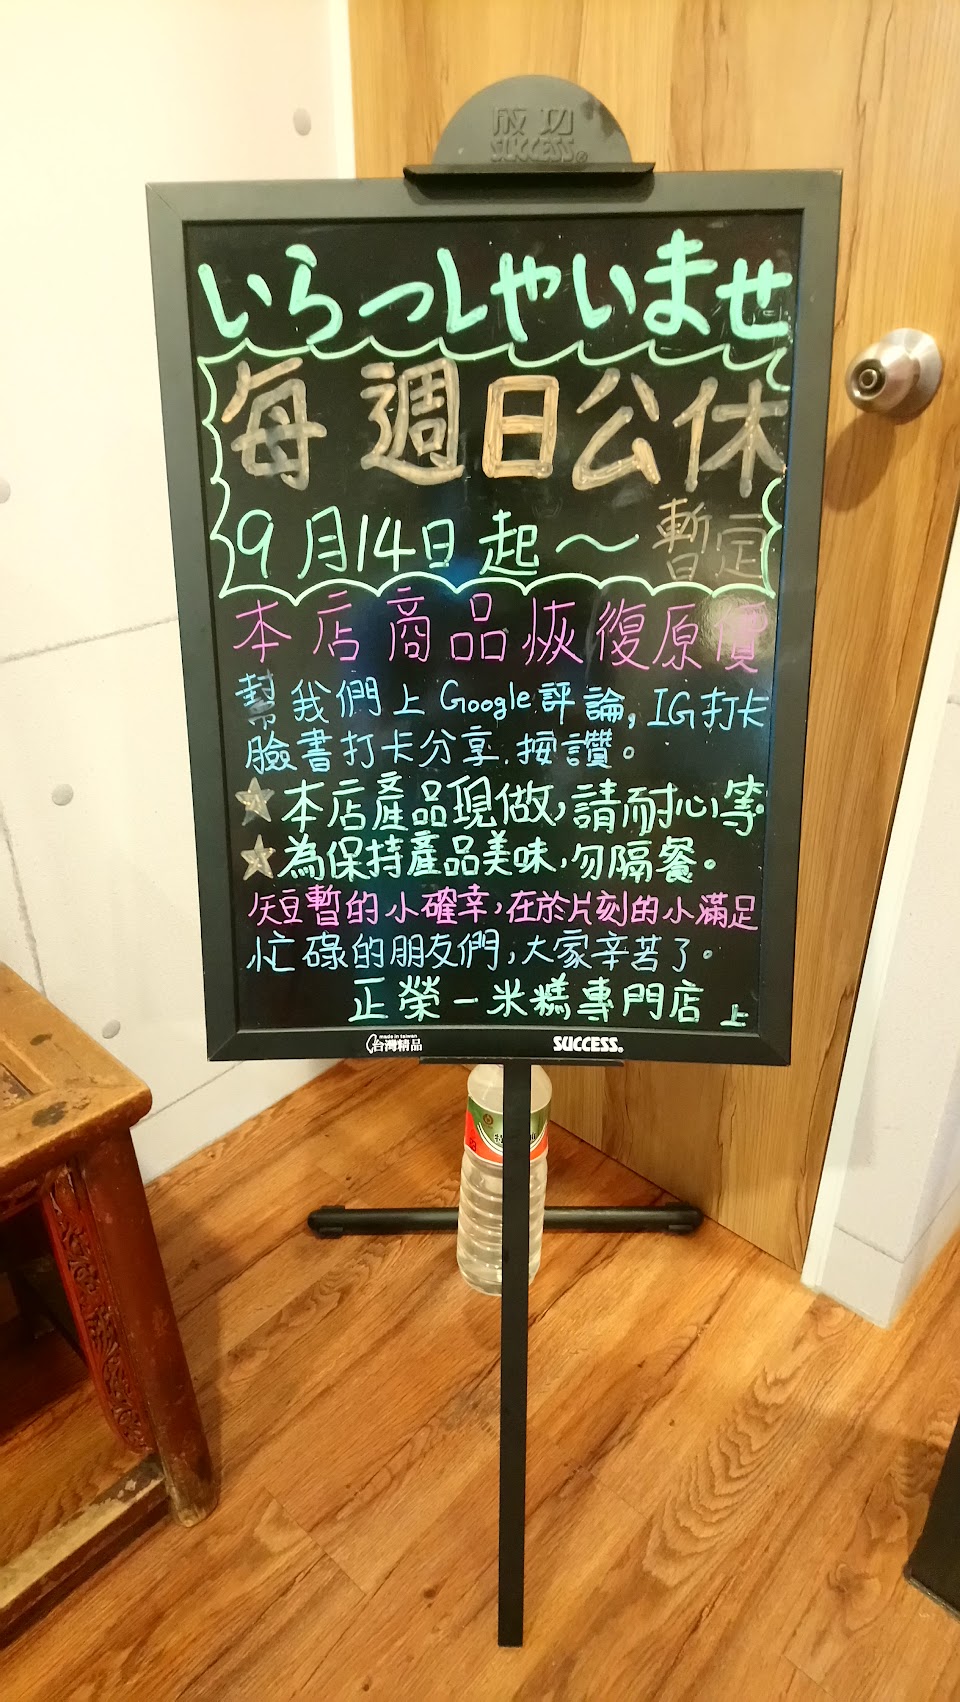 成功
SUCCESS®
いらっしゃいませ
每週日公休
9月14日起～暫定
本店商品恢復原價
幫我們上Google評論, IG打卡
臉書打卡分享.按讚。
★本店產品現做,請耐心等
★為保持產品美味,勿隔餐。
短暫的小確幸,在於片刻的小滿足
忙碌的朋友們,大家辛苦了。
正榮一米糕專門店 上
made in taiwan
台灣精品
SUCCESS®